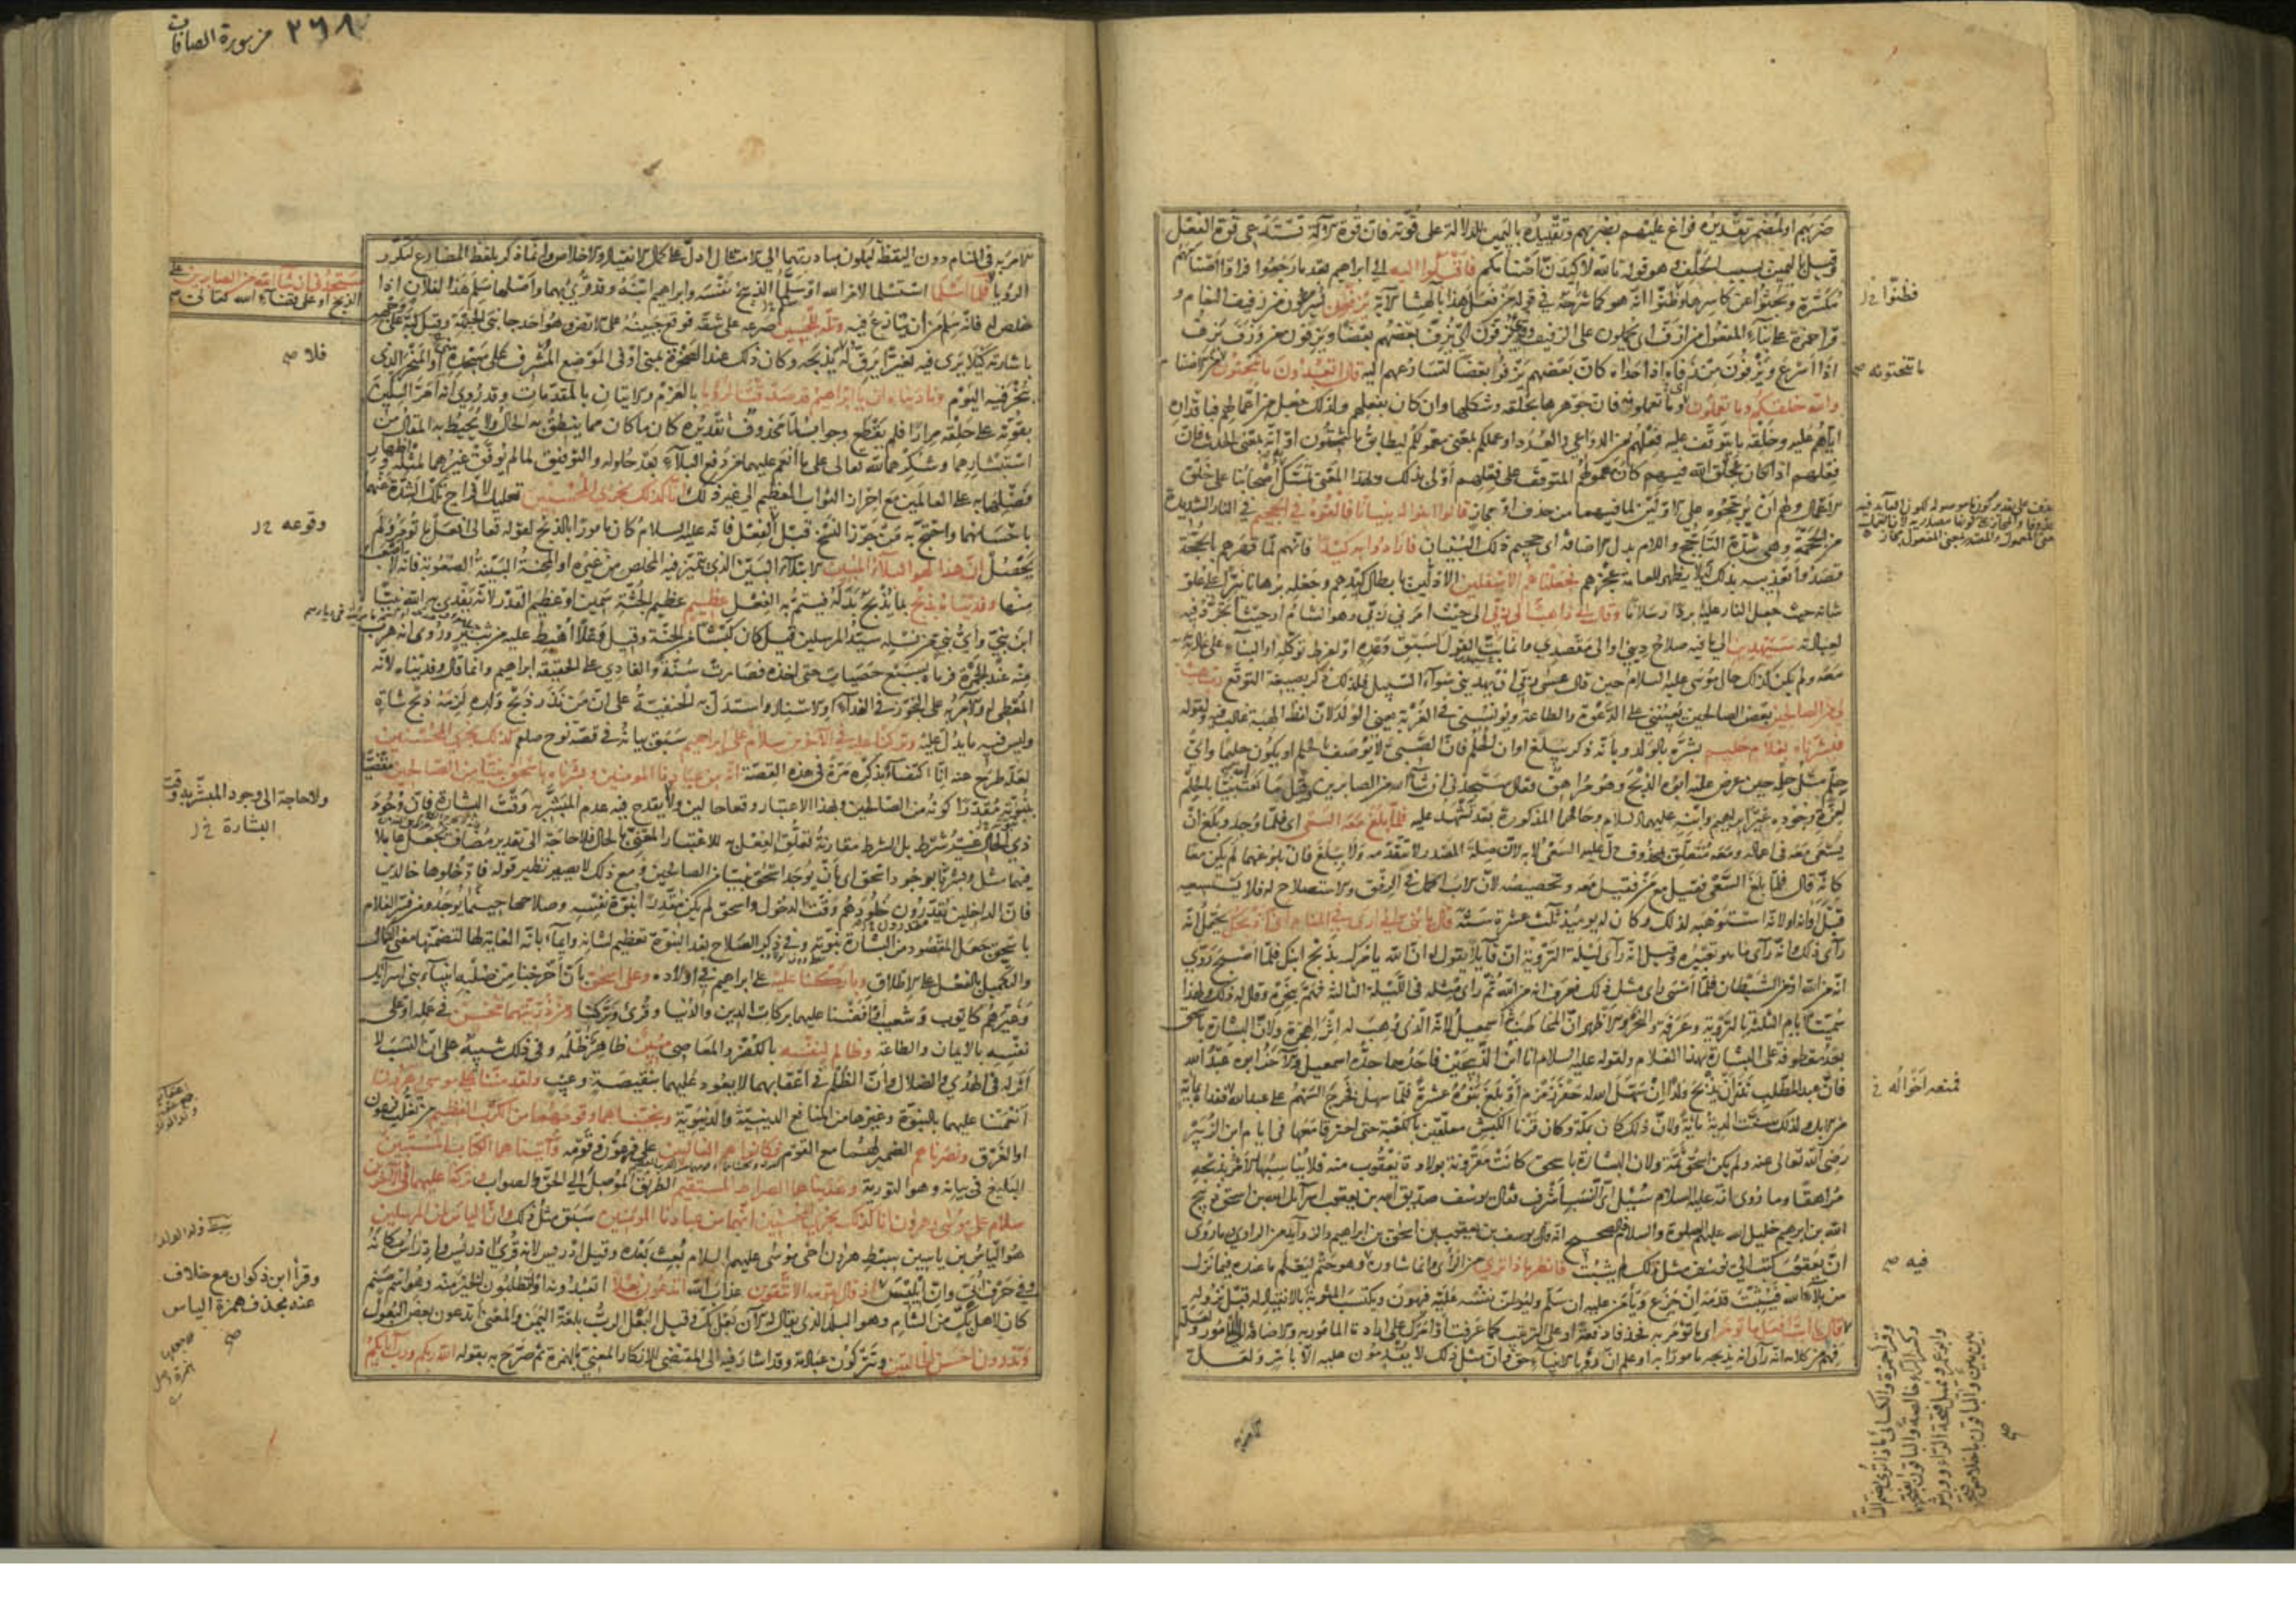 ضربهم او لمضمر تقديره فراغ عليهم يضربهم وتقييده باليمين للدلالة على قوته فان قوة الآلة تستدعي قوة الفعل
وقيل باليمين بسبب الحلف وهو قوله تالله لاكيدن اصنامكم فاقبلوا اليه الى ابراهيم بعد ما رجعوا فراوا اصنامهم
مكسرة وبحثوا عن كاسرها وظنوا انه هو كما شرحه في قوله من فعل هذا بآلهتنا الآية يزفون يسرعون من زفيف النعام و
قرأ حمزة على بناء المفعول من ازفه اي يحملون على الزفيف ويزفون اي يزف بعضهم بعضا ويزفون من وزف يزف
اذا اسرع ويزفون من زفاه اذا حداه كان بعضهم يزفوا بعضا لتسارعهم اليه قال اتعبدون ما تنحتون من الاصنام
والله خلقكم وما تعملون اي وما تعملونه فان جوهرها بخلقه وشكلها وان كان بفعلهم ولذلك جعل من اعمالهم فباقداره
اياهم عليه وخلقه ما يتوقف عليه فعلهم من الدواعي والعدد او عملكم بمعنى معمولكم ليطابق ما تنحتون او انه بمعنى الحدث فان
فعلهم اذا كان بخلق الله فيهم كان مفعولهم المتوقف على فعلهم اولى بذلك وبهذا المعنى تمسك اصحابنا على خلق
الاعمال ولهم ان يرجحوه على الاولين لما فيهما من حذف او مجاز قالوا ابنوا له بنيانا فالقوه في الجحيم في النار الشديدة
من الجحمة وهي شدة التاجج واللام بدل الاضافة اي جحيم ذلك البنيان فارادوا به كيدا فانهم لما قهرهم بالحجة
قصدوا تعذيبه بذلك لئلا يظهر للعامة عجزهم فجعلناهم الاسفلين الاذلين بابطال كيدهم وجعله برهانا نيرا على علو
شانه حيث جعل النار عليه بردا وسلاما وقال اني ذاهب الى ربي الى حيث امرني ربي وهو الشام او حيث اتجرد فيه
لعبادته سيهدين الى ما فيه صلاح ديني او الى مقصدي وانما بت القول لسبق وعده او لفرط توكله او البناء على عادته
معه ولم يكن كذلك حال موسى عليه السلام حين قال عسى ربي ان يهديني سواء السبيل فلذلك ذكر بصيغة التوقع رب هب
لي من الصالحين بعض الصالحين يعينني على الدعوة والطاعة ويونسني في الغربة يعني الولد لان لفظ الهبة غالب فيه ولقوله
فبشرناه بغلام حليم بشره بالولد وبانه ذكر يبلغ اوان الحلم فان الصبي لا يوصف بالحلم او يكون حليما واي
حلم مثل حلمه حين عرض عليه ابوه الذبح وهو مراهق فقال ستجدني ان شاء الله من الصابرين وقيل ما نعت الله نبيا بالحلم
لعزة وجوده غير ابراهيم وابنه عليهما السلام وحالهما المذكورة بعد تشهد عليه فلما بلغ معه السعي اي فلما وجد وبلغ ان
يسعى معه في اعماله ومعه متعلق بمحذوف دل عليه السعي لا به لان صلة المصدر لا تتقدمه ولا ببلغ فان بلوغهما لم يكن معا
كانه قال فلما بلغ السعي فقيل مع من فقيل معه وتخصيصه لان الاب اكمل في الرفق والاستصلاح له فلا يستسعيه
قبل اوانه او لانه استوهبه لذلك وكان له يومئذ ثلث عشرة سنة قال يا بني اني ارى في المنام اني اذبحك يحتمل انه
رأى ذلك وانه رأى ما هو تعبيره وقيل انه رأى ليلة التروية ان قائلا يقول له ان الله يامرك بذبح ابنك فلما اصبح روى
انه من الله او من الشيطان فلما امسى رأى مثل ذلك فعرف انه من الله ثم رأى مثله في الليلة الثالثة فهم بنحره وقال له ذلك ولهذا
سميت الايام الثلثة بالتروية وعرفة والنحر والاظهر ان المخاطب اسمعيل لانه الذي وهب له اثر الهجرة ولان البشارة باسحق
بعد معطوفة على البشارة بهذا الغلام ولقوله عليه السلام انا ابن الذبيحين فاحدهما جده اسمعيل والآخر ابوه عبد الله
فان عبد المطلب نذر ان يذبح ولدا ان سهل الله له حفر زمزم او بلغ بنوه عشرة فلما سهل فخرج السهم على عبد الله ففداه بمائة
من الابل ولذلك سنت الدية مائة ولان ذلك كان بمكة وكان قرنا الكبش معلقين بالكعبة حتى احترقا معها في ايام ابن الزبير
رضي الله تعالى عنه ولم يكن اسحق ثمة ولان البشارة باسحق كانت مقرونة بولادة يعقوب منه فلا يناسبها الامر بذبحه
مراهقا وما روى انه عليه السلام سئل اي النسب اشرف فقال يوسف صديق الله بن يعقوب اسرائيل الله بن اسحق ذبيح
الله بن ابرهيم خليل الله عليهم الصلوة والسلام فالصحيح انه قال يوسف بن يعقوب بن اسحق بن ابراهيم والزوايد من الراوي وما روى
ان يعقوب كتب الى يوسف مثل ذلك لم يثبت فانظر ماذا ترى من الراي وانما شاوره وهو حتم ليعلم ما عنده فيما نزل
من بلاء الله فيثبت قدمه ان جزع ويامن عليه ان سلم وليوطن نفسه عليه فيهون ويكتسب المثوبة بالانقياد له قبل نزوله
قال يا ابت افعل ما تؤمر اي ما تؤمر به فحذفا دفعة او على الترتيب كما عرفت او امرك على ارادة المامور به والاضافة الى المامور ولعله
فهم من كلامه انه رأى انه يذبحه مامورا به او علم ان رؤيا الانبياء حق وان مثل ذلك لا يقدمون عليه الا بامر ولعل
فظنوا خ
ما تنحتونه صح
فمنعه اخواله خ
فيه صح
وقرأ حمزة والكسائي ماذا ترى بضم التا
وكسر الراء خالصة والباقون بفتحهما
وابو عمرو يميل فتحة الراء وورش
بين بين والباقون باخلاص فتحها
صح
٢٦٨ من سورة الصافات
الامر به في المنام دون اليقظة ليكون مبادرتهما الى الامتثال ادل على كمال الانقياد والاخلاص وانما ذكر بلفظ المضارع لتكرر
الرؤيا فلما اسلما استسلما لامر الله او سلما الذبيح نفسه وابراهيم ابنه وقد قرئ بهما واصلها سلم هذا لفلان اذا
خلص له فانه سلم من ان ينازع فيه وتله للجبين صرعه على شقه فوقع جبينه على الارض وهو احد جانبي الجبهة وقيل كبه على وجهه
باشارته كيلا يرى فيه تغيرا يرق له فلا يذبحه وكان ذلك عند الصخرة بمنى او في الموضع المشرف على مسجده او المنحر الذي
ينحر فيه اليوم وناديناه ان يا ابراهيم قد صدقت الرؤيا بالعزم والاتيان بالمقدمات وقد روى انه امر السكين
بقوته على حلقه مرارا فلم يقطع وجواب لما محذوف تقديره كان ما كان مما ينطق به الحال ولا يحيط به المقال من
استبشارهما وشكرهما لله تعالى على ما انعم عليهما من دفع البلاء بعد حلوله والتوفيق لما لم يوفق غيرهما لمثله واظهار
فضلهما به على العالمين مع احراز الثواب العظيم الى غير ذلك انا كذلك نجزي المحسنين تعليل لافراج تلك الشدة عنهما
باحسانهما واحتج به من جوز النسخ قبل الفعل فانه عليه السلام كان مامورا بالذبح لقوله تعالى افعل ما تؤمر ولم
يحصل ان هذا لهو البلاء المبين الابتلاء البين الذي يتميز فيه المخلص من غيره او المحنة البينة الصعوبة فانه لا اصعب
منها وفديناه بذبح بما يذبح بدله فيتم به الفعل عظيم عظيم الجثة سمين او عظيم القدر لانه يفدي به الله نبيا
ابن نبي واي نبي من نسله سيد المرسلين قيل كان كبشا من الجنة وقيل وعلا اهبط عليه من ثبير وروى انه هرب
منه عند الجمرة فرماه بسبع حصيات حتى اخذه فصارت سنة والفادي على الحقيقة ابراهيم وانما قال وفديناه لانه
المعطي له والآمر به على التجوز في الفداء او الاسناد واستدل به الحنفية على ان من نذر ذبح ولده لزمه ذبح شاة
وليس فيه ما يدل عليه وتركنا عليه في الآخرين سلام على ابراهيم سبق بيانه في قصة نوح صلعم كذلك نجزي المحسنين
لعله طرح عنه انا اكتفاء بذكره مرة في هذه القصة انه من عبادنا المومنين وبشرناه باسحق نبيا من الصالحين مقضيا
بنبوته مقدرا كونه من الصالحين وبهذا الاعتبار وقعا حالين ولا يقدح فيه عدم المبشر به وقت البشارة فان وجود
ذي الحال غير شرط بل الشرط مقارنة تعلق الفعل به للاعتبار المعنى بالحال فلا حاجة الى تقدير مضاف يجعل عاملا
فيهما مثل وبشرناه بوجود اسحق اي بان يوجد اسحق نبيا من الصالحين ومع ذلك لا يصير نظير قوله فادخلوها خالدين
فان الداخلين يقدرون خلودهم وقت الدخول واسحق لم يكن يقدر نبوة نفسه وصلاحها حيثما يوجد ومن فسر الغلام
باسحق جعل المقصود من البشارة نبوته وفي ذكر الصلاح بعد النبوة تعظيم لشانه وايماء بانه الغاية لها لتضمنها معنى الكمال
والتكميل بالفعل على الاطلاق وباركنا عليه على ابراهيم في اولاده وعلى اسحق بان اخرجنا من صلبه انبياء بني اسرائيل
وغيرهم كايوب وشعيب او افضنا عليهما بركات الدين والدنيا وقرئ وبركنا ومن ذريتهما محسن في عمله او على
نفسه بالايمان والطاعة وظالم لنفسه بالكفر والمعاصي مبين ظاهر ظلمه وفي ذلك تنبيه على ان النسب لا
اثر له في الهدى والضلال وان الظلم في اعقابهما لا يعود عليهما بنقيصة وعيب ولقد مننا على موسى وهرون
انعمنا عليهما بالنبوة وغيرها من المنافع الدينية والدنيوية ونجيناهما وقومهما من الكرب العظيم من تغلب فرعون
او الغرق ونصرناهم الضمير لهما مع القوم فكانوا هم الغالبين على فرعون وقومه وآتيناهما الكتاب المستبين
البليغ في بيانه وهو التورية وهديناهما الصراط المستقيم الطريق الموصل الى الحق والصواب وتركنا عليهما في الآخرين
سلام على موسى وهرون انا كذلك نجزي المحسنين انهما من عبادنا المومنين سبق مثل ذلك وان الياس لمن المرسلين
هو الياس بن ياسين سبط هرون اخي موسى عليهم السلام بعث بعده وقيل ادريس لانه قرئ ادريس وادراس مكانه
وفي حرف ابي وان ايليس اذ قال لقومه الا تتقون عذاب الله اتدعون بعلا اتعبدونه او تطلبون الخير منه وهو اسم صنم
كان لاهل بك من الشام وهو البلد الذي يقال له الآن بعلبك وقيل البعل الرب بلغة اليمن والمعنى اتدعون بعض البعول
وتذرون احسن الخالقين وتتركون عبادته وقد اشار فيه الى المقتضي للانكار المعنى بالهمزة ثم صرح به بقوله الله ربكم ورب آبائكم
ستجدني ان شاء الله من الصابرين على
الذبح او على قضاء الله تعالى صح
فلا صح
وقوعه خ
ولا حاجة الى وجود المبشر به وقت
البشارة خ
وقرأ ابن ذكوان مع خلاف
عنه بحذف همزة الياس
صح